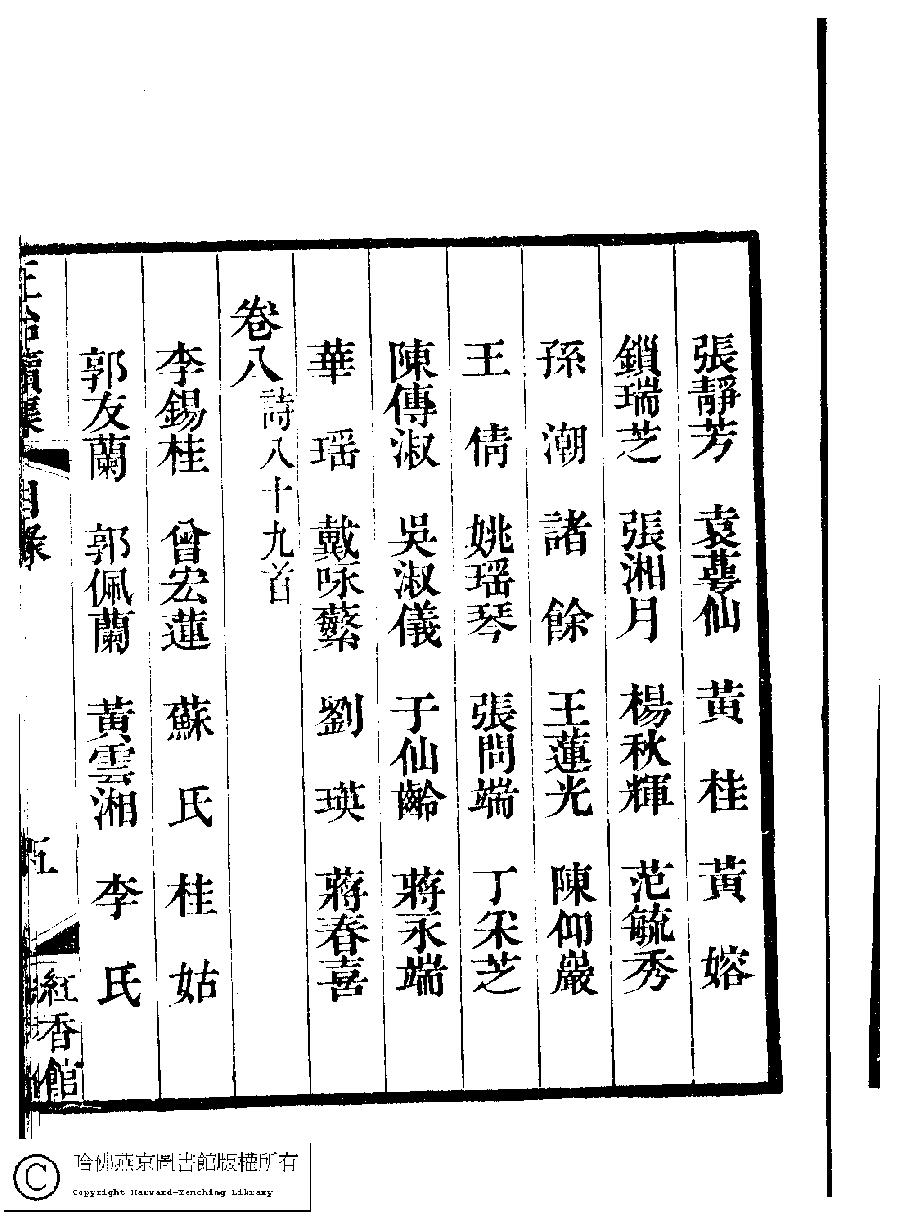 張靜芳　袁蘷仙　黃　桂　黃　嫆
鎖瑞芝　張湘月　楊秋輝　范毓秀
孫　潮　諸　餘　王蓮光　陳仰巖
王　倩　姚瑶琴　張問端　丁采芝
陳傳淑　吳淑儀　于仙齡　蔣永端
華　瑶　戴咏蘩　劉　瑛　蔣春喜
卷八　詩八十九首
李錫桂　曾宏蓮　蘇　氏　桂　姑
郭友蘭　郭佩蘭　黃雲湘　李　氏
續集　目錄　五　紅香館
哈佛燕京圖書館版權所有
Copyright Harvard-Yenching Library